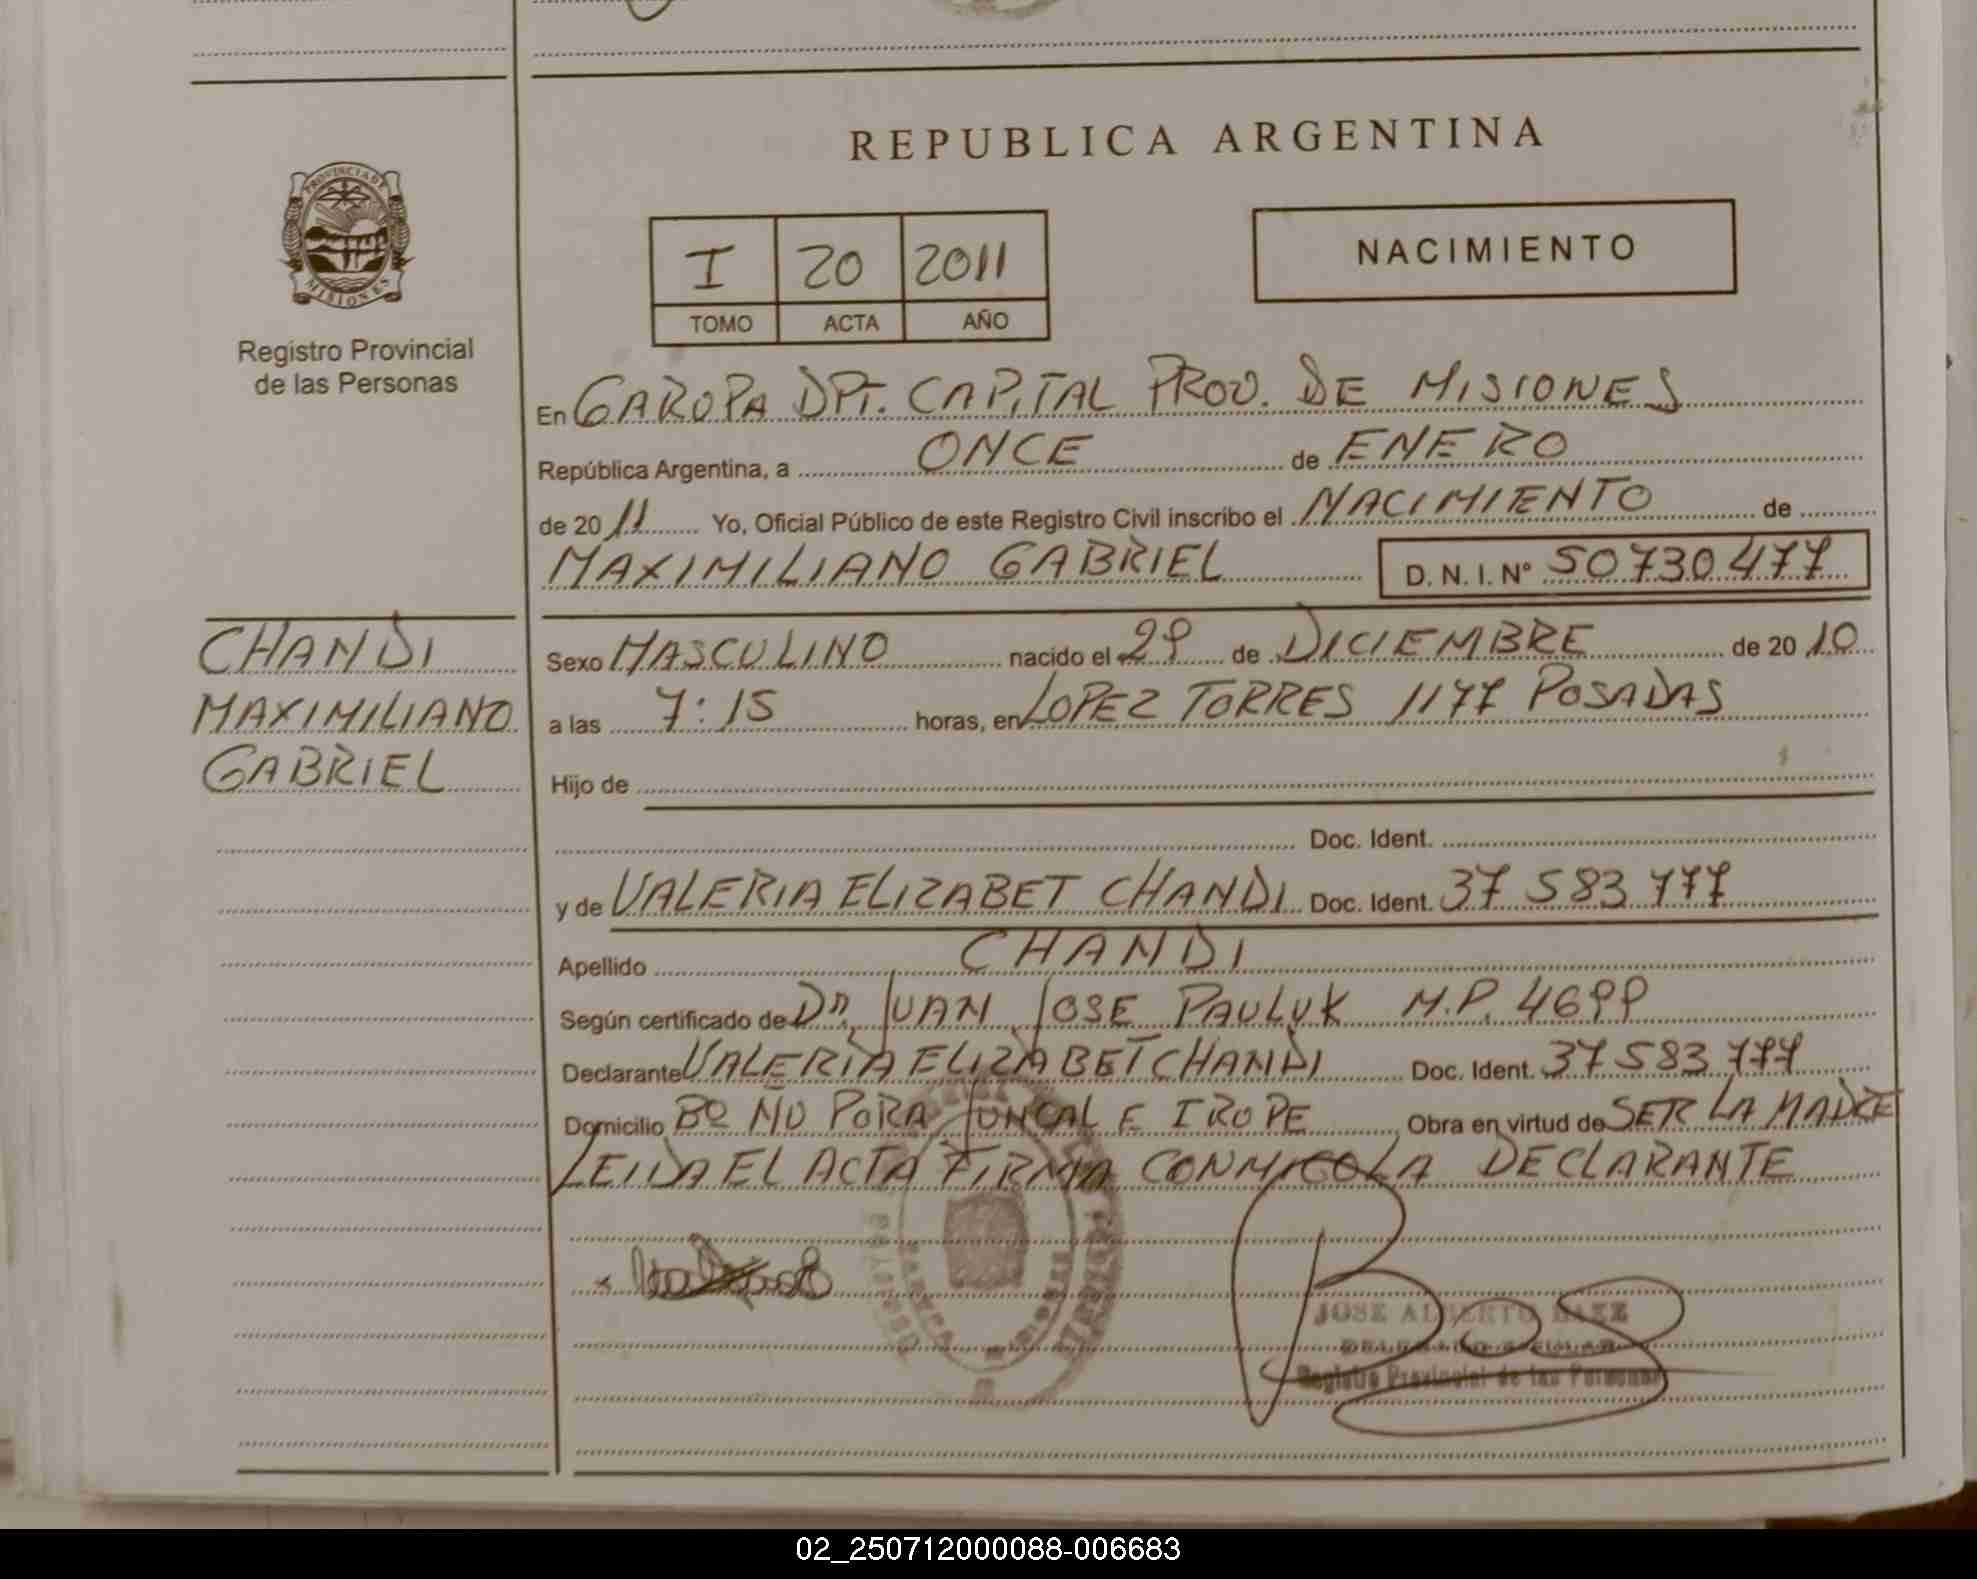 REPUBLICA ARGENTINA
PROVINCIA DE
MISIONES
Registro Provincial
de las Personas
I 20 2011
TOMO ACTA AÑO
NACIMIENTO
En GARUPA DPT. CAPITAL PROV. DE MISIONES
República Argentina, a ONCE de ENERO
de 2011 Yo, Oficial Público de este Registro Civil inscribo el NACIMIENTO de
MAXIMILIANO GABRIEL D. N. I. Nº 50730477
CHANDI
MAXIMILIANO
GABRIEL
Sexo MASCULINO nacido el 29 de DICIEMBRE de 2010
a las 7:15 horas, en LOPEZ TORRES 1177 POSADAS
Hijo de
Doc. Ident.
y de VALERIA ELIZABET CHANDI Doc. Ident. 37 583 777
Apellido CHANDI
Según certificado de Dr. JUAN JOSE PAULUK M.P. 4699
Declarante VALERIA ELIZABET CHANDI Doc. Ident. 37 583 777
Domicilio Bº ÑU PORA JUNCAL E IROPE Obra en virtud de SER LA MADRE
LEIDA EL ACTA FIRMA CONMIGO LA DECLARANTE
JOSE ALBERTO BAEZ
Registro Provincial de las Personas
02_250712000088-006683